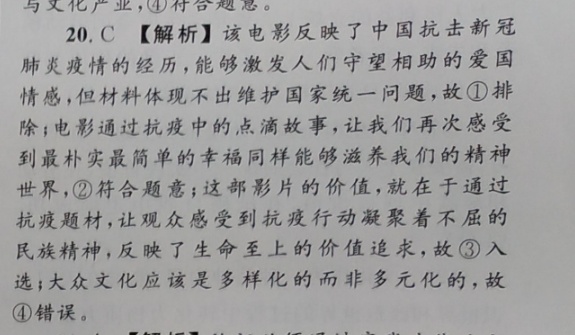 与文化产业,④符合题意。
20. C 【解析】该电影反映了中国抗击新冠
肺炎疫情的经历,能够激发人们守望相助的爱国
情感,但材料体现不出维护国家统一问题,故①排
除;电影通过抗疫中的点滴故事,让我们再次感受
到最朴实最简单的幸福同样能够滋养我们的精神
世界,②符合题意;这部影片的价值,就在于通过
抗疫题材,让观众感受到抗疫行动凝聚着不屈的
民族精神,反映了生命至上的价值追求,故③入
选;大众文化应该是多样化的而非多元化的,故
④错误。
【解析】